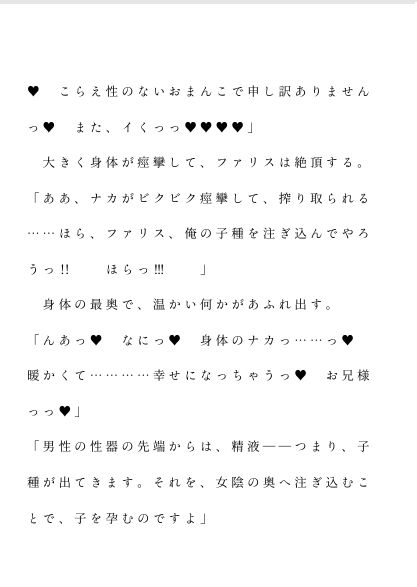 ♥　こらえ性のないおまんこで申し訳ありません
っ♥　また、イくっっ♥♥♥♥」
　大きく身体が痙攣して、ファリスは絶頂する。
「ああ、ナカがビクビク痙攣して、搾り取られる
……ほら、ファリス、俺の子種を注ぎ込んでやろ
うっ!!　　ほらっ!!!　　」
　身体の最奥で、温かい何かがあふれ出す。
「んあっ♥　なにっ♥　身体のナカっ……っ♥
暖かくて…………幸せになっちゃうっ♥　お兄様
っっ♥」
「男性の性器の先端からは、精液――つまり、子
種が出てきます。それを、女陰の奥へ注ぎ込むこ
とで、子を孕むのですよ」